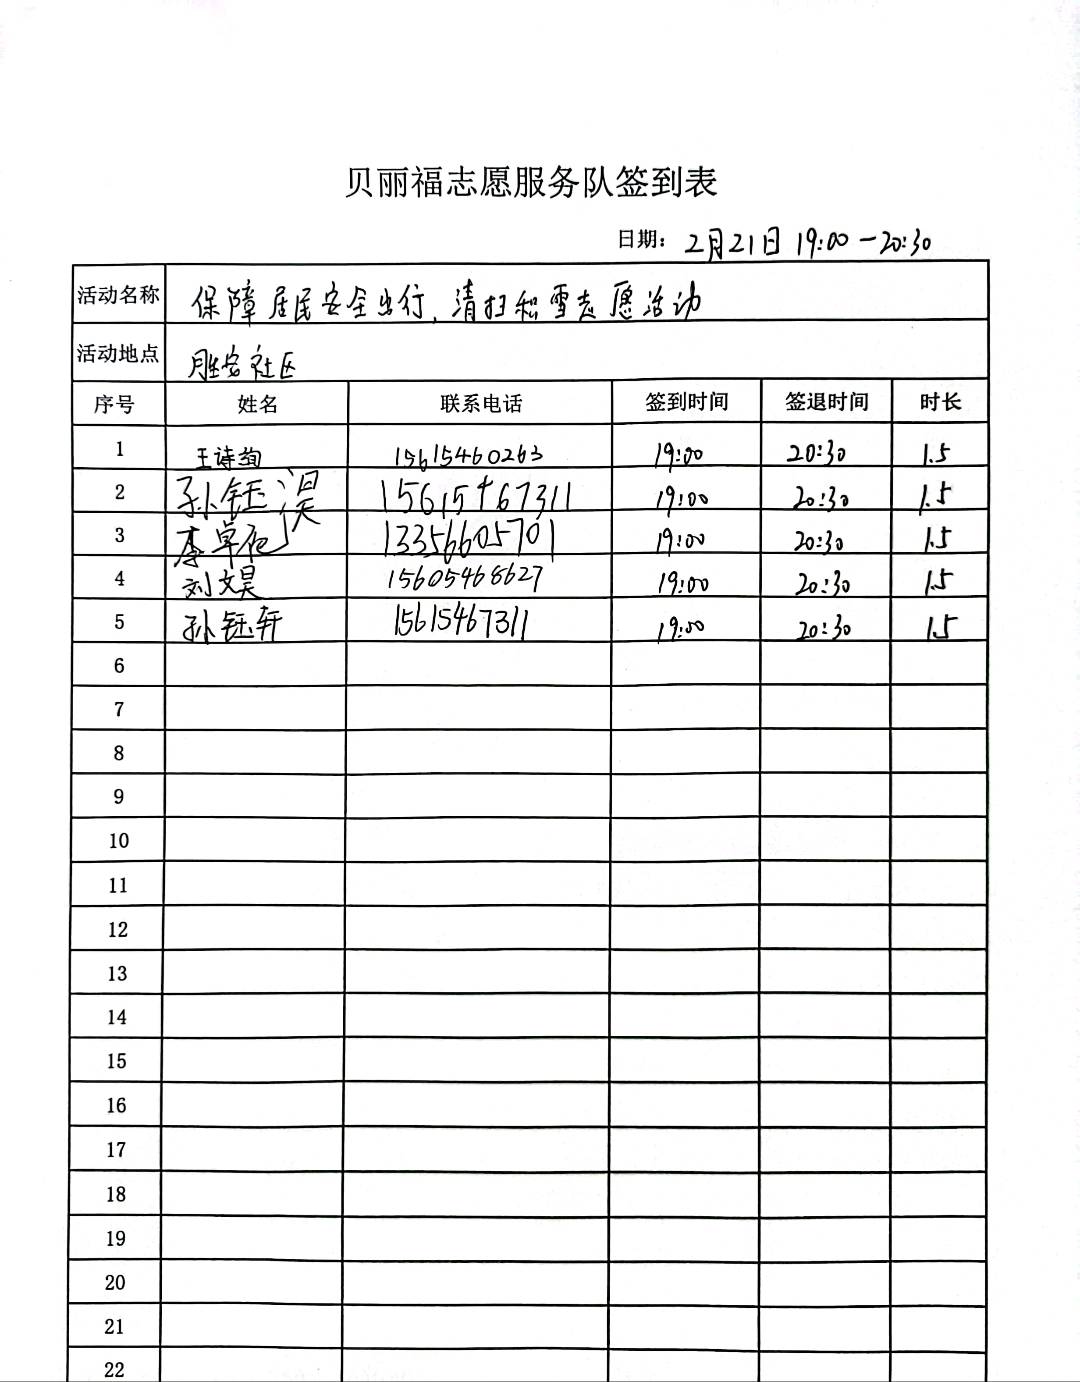 贝丽福志愿服务队签到表
日期: 2月21日 19:00-20:30
活动名称 保障居民安全出行,清扫积雪志愿活动
活动地点 胜安社区
序号 姓名 联系电话 签到时间 签退时间 时长
1 王诗绚 15615460263 19:00 20:30 1.5
2 孙钰淏 15615467311 19:00 20:30 1.5
3 李卓 13356605701 19:00 20:30 1.5
4 刘文昊 15605468627 19:00 20:30 1.5
5 孙钰轩 15615467311 19:00 20:30 1.5
6
7
8
9
10
11
12
13
14
15
16
17
18
19
20
21
22